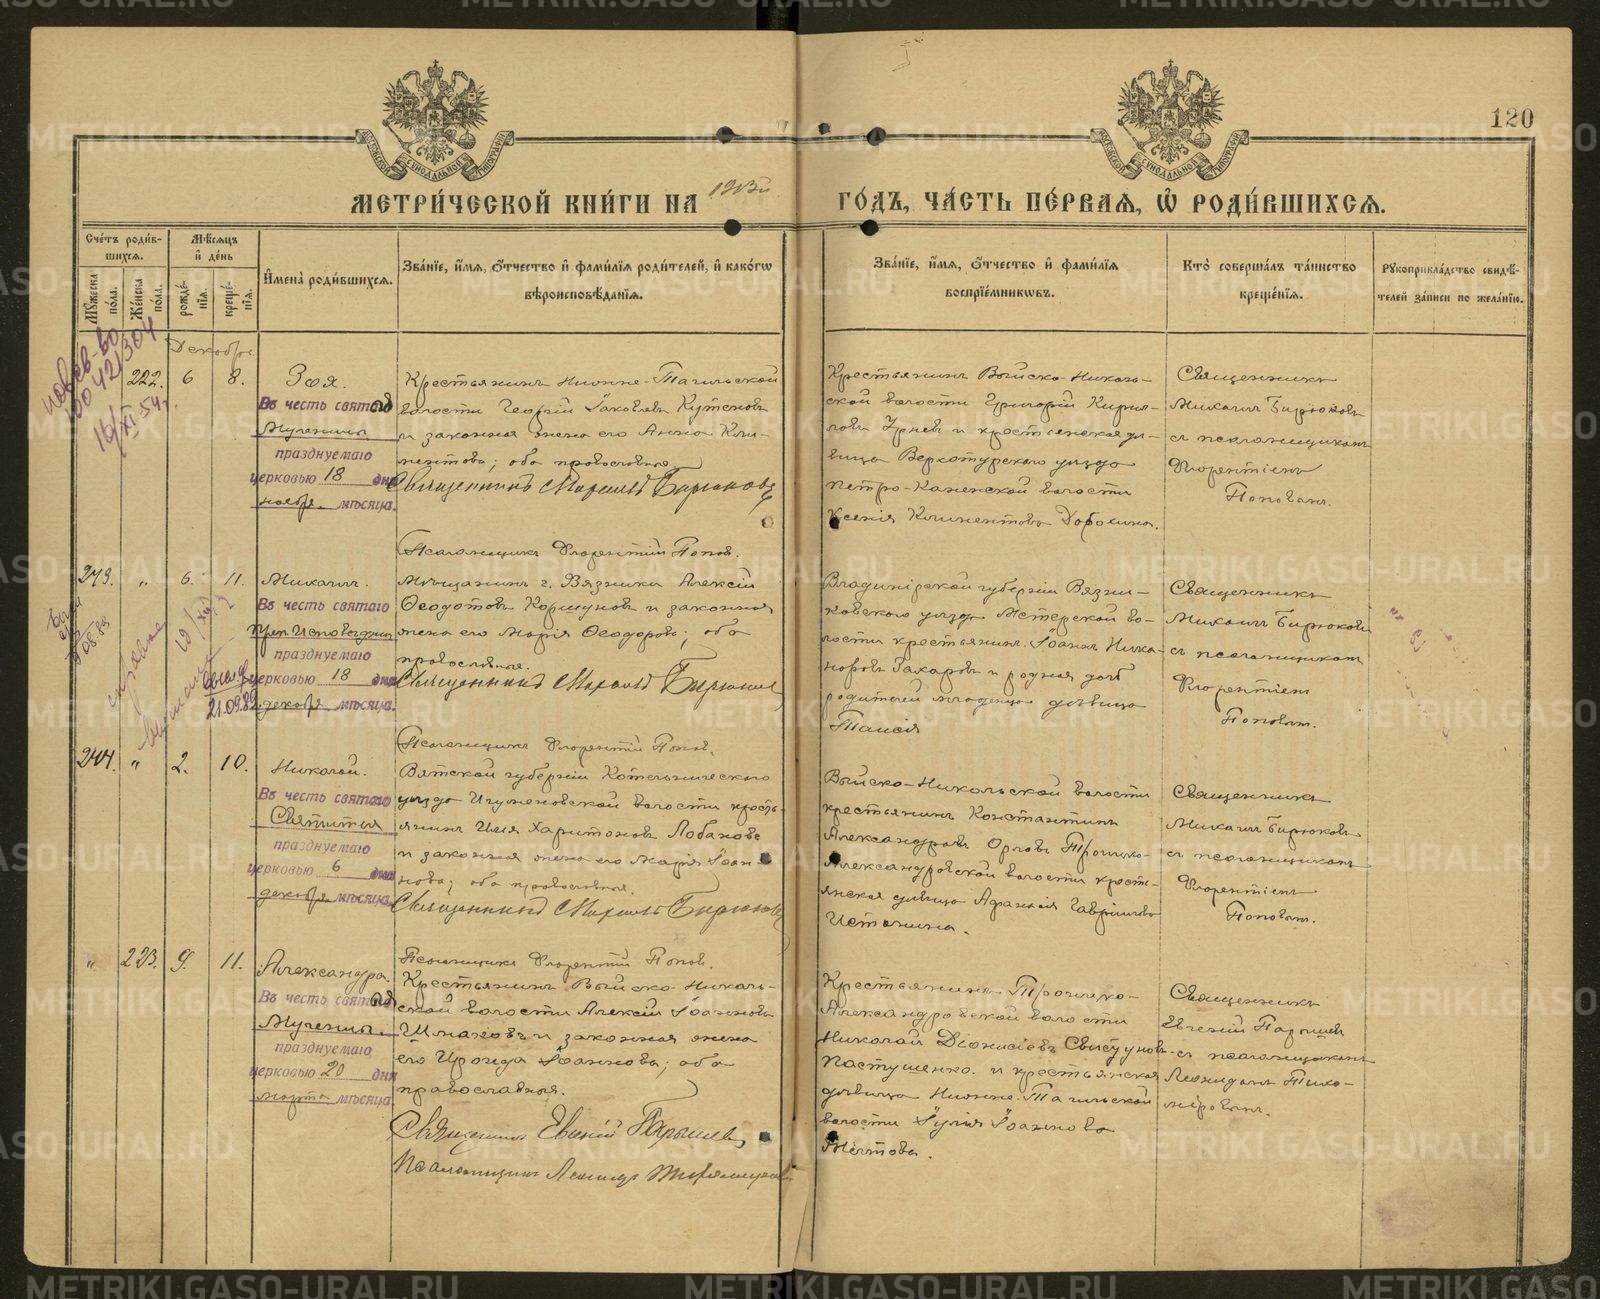 120
МЕТРИ́ЧЕСКОЙ КНИ́ГИ НА 1913й ГО́ДЪ, ЧА́СТЬ ПЕ́РВАЯ, Ѡ҆ РОДИ́ВШИХСЯ.
Сче́тъ роди́в-
шихся.
Мѹ́жеска
по́ла.
Же́нска
по́ла.
Мѣ́сяцъ
и҆ де́нь
рожде́-
нїя.
креще́-
нїя.
И҆мена̀ роди́вшихся.
Зва́нїе, и҆́мя, ѻ҆́тчество и҆ фами́лїя роди́телей, и҆ како́гѡ
вѣроисповѣ́данїя.
Зва́нїе, и҆́мя, ѻ҆́тчество и҆ фами́лїя
воспрїе́мникѡвъ.
Кто̀ соверша́лъ та́инство
креще́нїя.
Рѹкоприкла́дство свидѣ́-
телей за́писи по жела́нїю.
Декабрь.
222. 6 8.
Зоя.
Въ честь святой
Мученицы
празднуемаго
церковью 18 дня
ноября мѣсяца.
Крестьянинъ Нижне-Тагильской
волости Георгій Іаковлевъ Кутеновъ
и законная жена его Анна Кли-
ментова; оба православные.
Священникъ Михаилъ Бирюковъ
Псаломщикъ Флорентій Поповъ.
Крестьянинъ Выйско-Николь-
ской волости Григорій Кирил-
ловъ и крестьянская дѣ-
вица Верхотурскаго уѣзда
Петро-Каменской волости
Ксенія Климентова Дорохина.
Священникъ
Михаилъ Бирюковъ
съ псаломщикомъ
Флорентіемъ
Поповымъ.
243. " 6. 11.
Михаилъ.
Въ честь святаго
Преп. Исповѣдника
празднуемаго
церковью 18 дня
декабря мѣсяца.
Мѣщанинъ г. Вязники Алексій
Ѳеодотовъ Коршуновъ и законная
жена его Марія Ѳеодорова; оба
православные.
Священникъ Михаилъ Бирюковъ
Псаломщикъ Флорентій Поповъ.
Владимірской губерніи Вязни-
ковскаго уѣзда Мстерской во-
лости крестьянинъ Іоаннъ Ника-
норовъ Захаровъ и родная дочь
родителей младенца дѣвица
Таисія
Священникъ
Михаилъ Бирюковъ
съ псаломщикомъ
Флорентіемъ
Поповымъ.
244. " 2. 10.
Николай.
Въ честь святаго
Святителя
празднуемаго
церковью 6 дня
декабря мѣсяца.
Вятской губерніи Котельническаго
уѣзда Игуменовской волости кресть-
янинъ Илія Харитоновъ Лобановъ
и законная жена его Марія Іоан-
нова; оба православные.
Священникъ Михаилъ Бирюковъ
Псаломщикъ Флорентій Поповъ.
Выйско-Никольской волости
крестьянинъ Константинъ
Александровъ Орловъ Троицко-
Александровской волости кресть-
янская дѣвица Аѳанасія Гавріилова
Истомина.
Священникъ
Михаилъ Бирюковъ
съ псаломщикомъ
Флорентіемъ
Поповымъ.
" 223. 9. 11.
Александра.
Въ честь святой
Мученицы.
празднуемаго
церковью 20 дня
марта мѣсяца
Крестьянинъ Выйско-Николь-
ской волости Алексій Іоанновъ
Шмаковъ и законная жена
его Ираида Іоаннова; оба
православные.
Священникъ Евгеній Парышевъ
Псаломщикъ Леонидъ Тихомировъ
Крестьянинъ Троицко-
Александровской волости
Николай Діонисіевъ Свистуновъ-
Пастушенко. и крестьянская
дѣвица Нижне-Тагильской
волости Іулія Іоаннова
Мѣтова.
Священникъ
Евгеній Парышевъ
съ псаломщикомъ
Леонидомъ Тихо-
міровымъ.